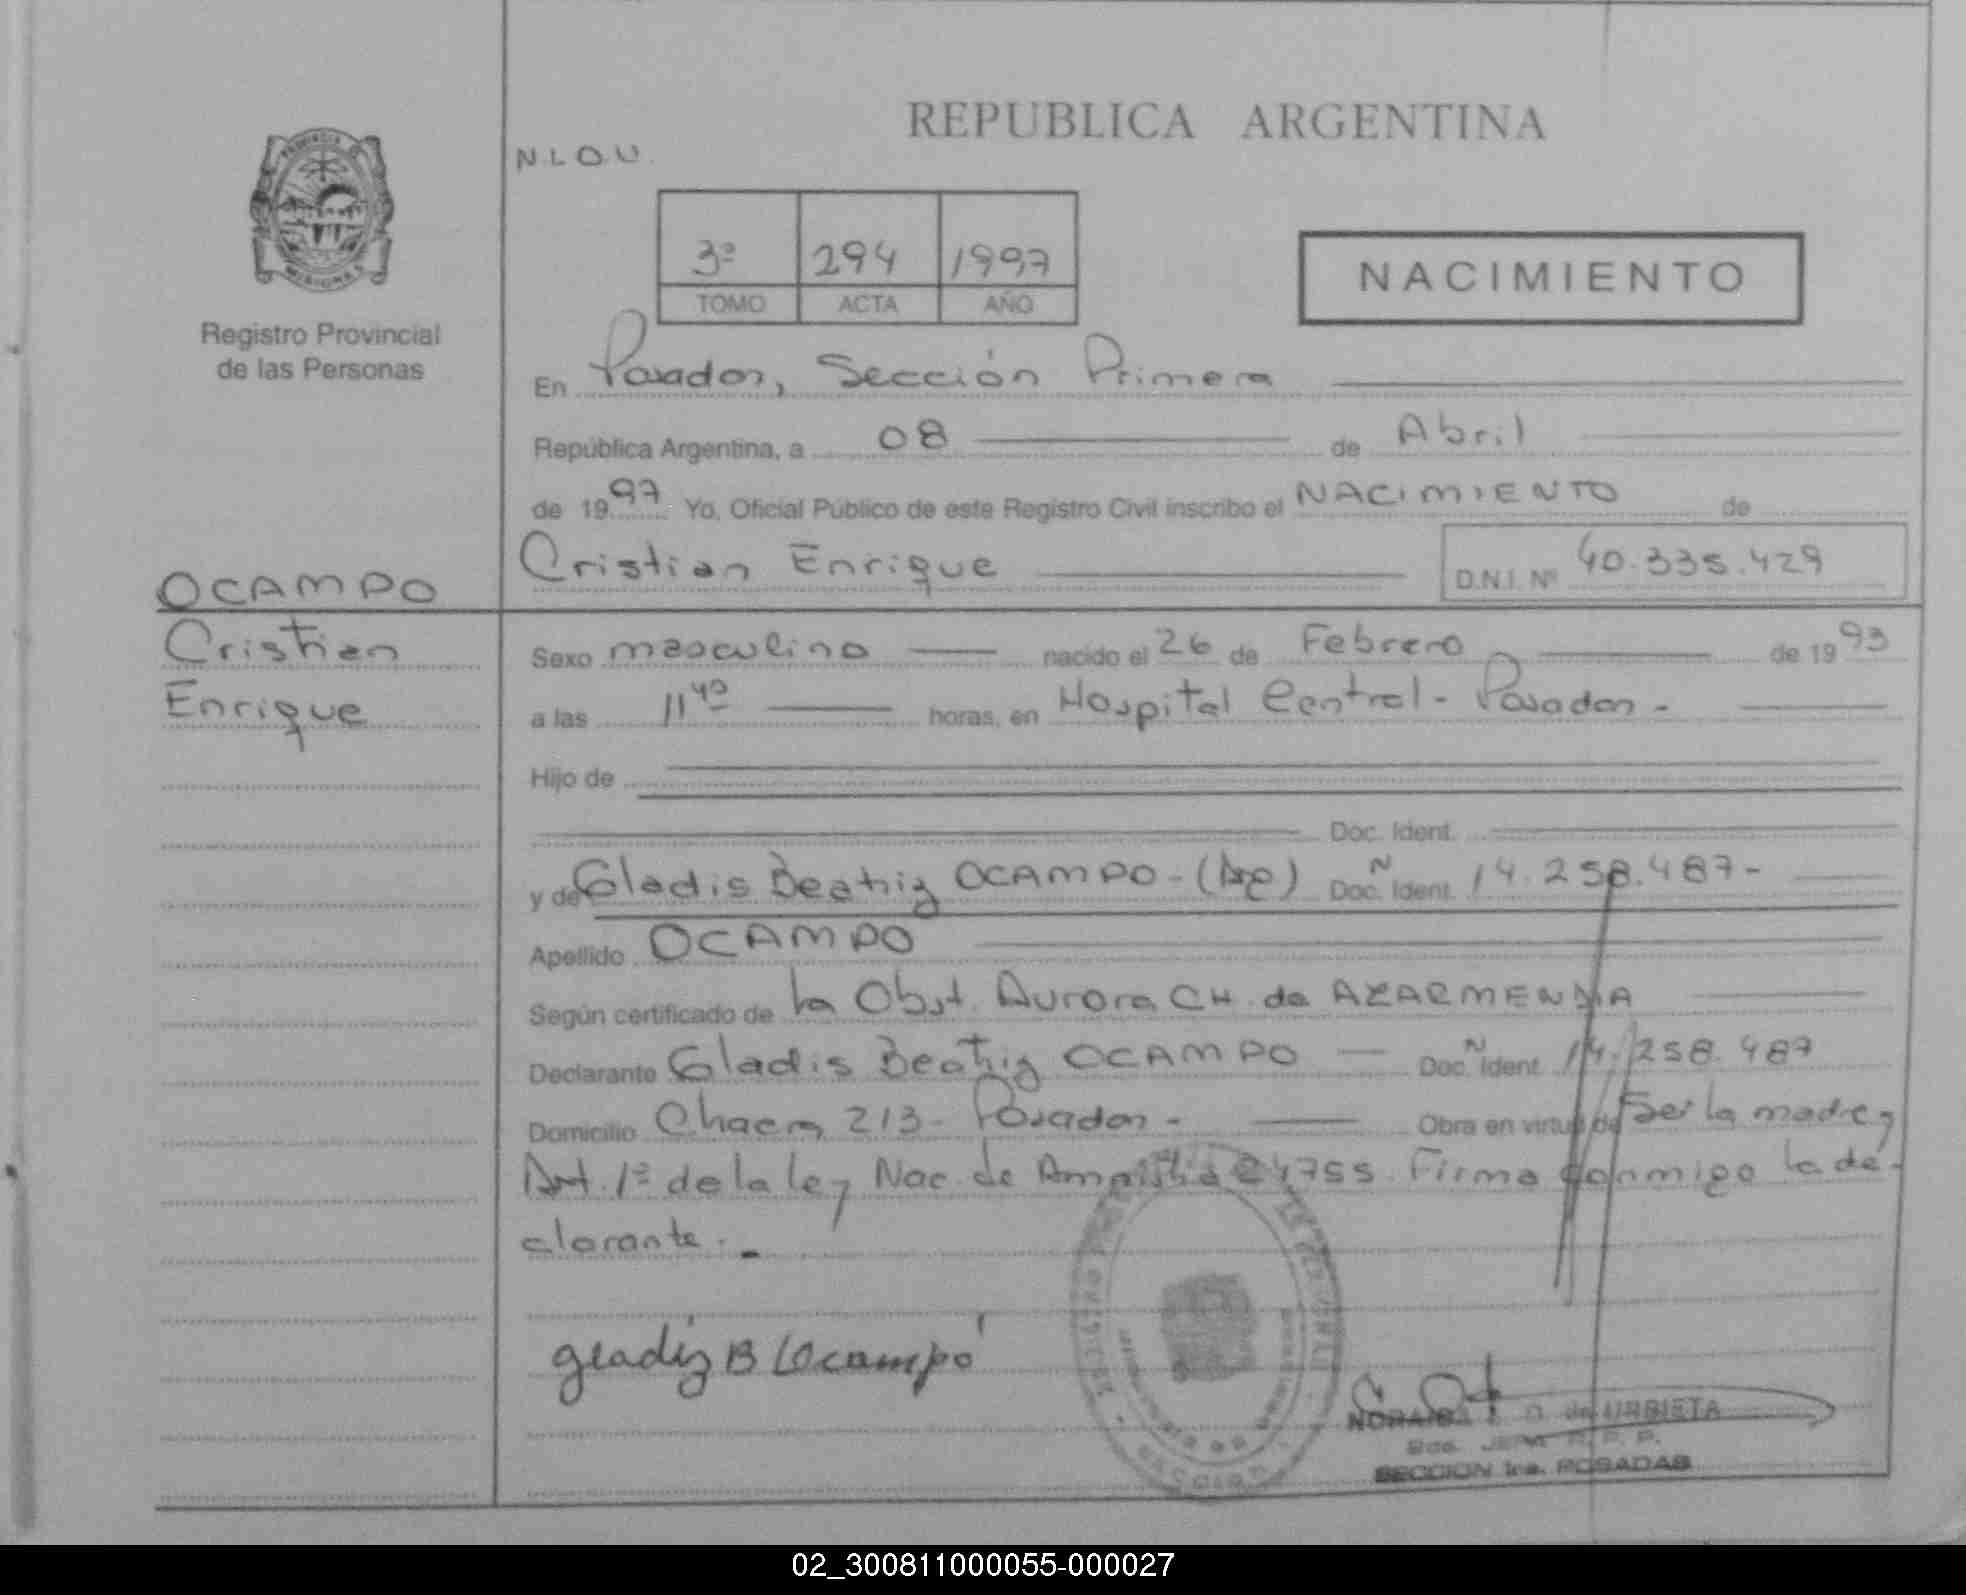 REPUBLICA ARGENTINA
N.L.O.U.
3º 294 1997
TOMO ACTA AÑO
NACIMIENTO
Registro Provincial
de las Personas
En Posadas, Sección Primera
República Argentina, a 08 de Abril
de 1997 Yo, Oficial Público de este Registro Civil inscribo el NACIMIENTO de
Cristian Enrique D.N.I. Nº 40.335.429
OCAMPO
Cristian
Enrique
Sexo masculino nacido el 26 de Febrero de 1993
a las 11 40 horas, en Hospital Central - Posadas -
Hijo de
Doc. Ident.
y de Gladis Beatriz OCAMPO - (Arg) N Doc. Ident. 14.258.487-
Apellido OCAMPO
Según certificado de la Obst. Aurora CH. de
Declarante Gladis Beatriz OCAMPO N Doc. Ident. 14.258.487
Domicilio Chacra 213 - Posadas - Obra en virtud de Ser la madre y
Art. 1º de la ley Nac. de Amnistia 24755. Firma conmigo la de-
clarante.-
gladiz B Ocampo
de URBIETA
R. P. P.
SECCION 1ra. POSADAS
02_300811000055-000027